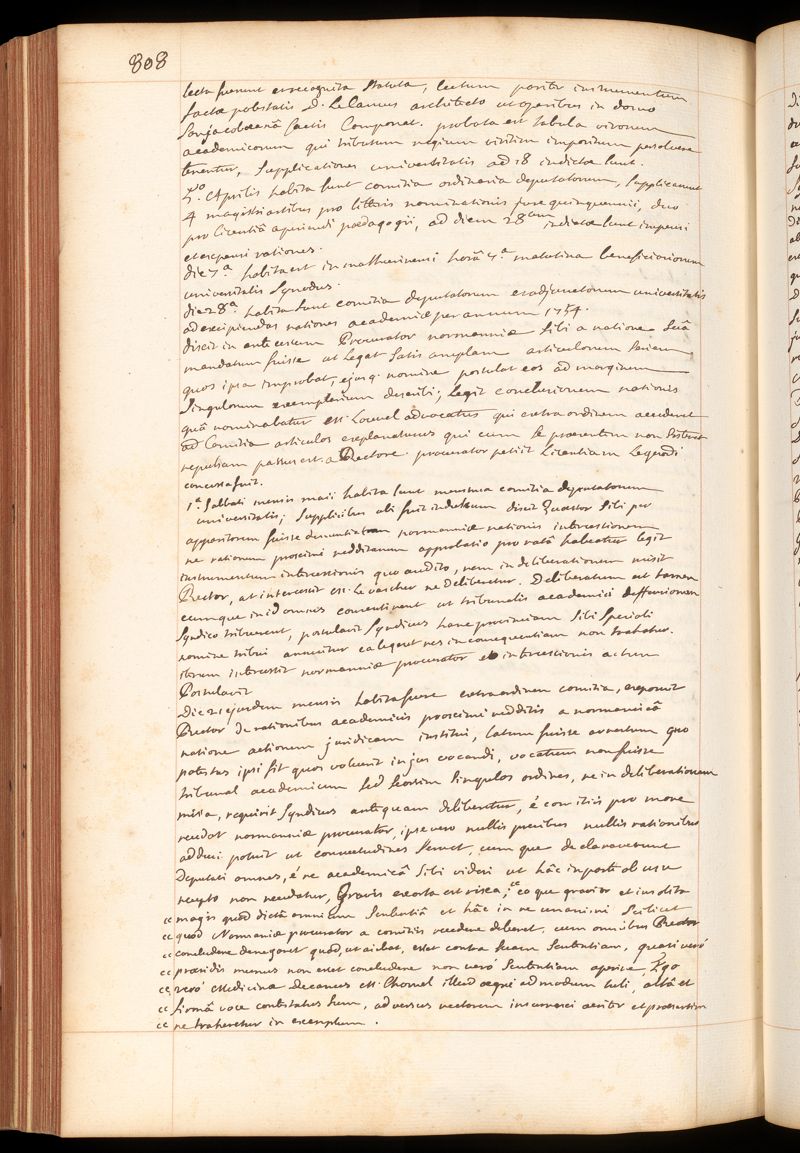 808
lecta fuerunt et recognita statuta, lectum pariter instrumentum
factæ potestatis D. Le Camus architecto ut operibus in domo
Sanjacobæanâ factis Componat. probata est tabula virorum
academicorum qui tributum regium viritim impositum persolvere
tenentur, supplicationes universitatis ad 18 indictæ sunt.
5º. Aprilis habita sunt comitia ordinaria deputatorum, supplicarunt
4 magistri artibus pro litteris nominationis jure quinquennii, duo
pro licentiâ aperiendi pædagogii, ad diem 28am indictæ sunt impensi
et expensi rationes.
die 7.ª habita est in mathurinensi horâ 4.ª matutina beneficiariorum
universitatis Synodus.
die 28ª habita sunt comitia deputatorum et adjunctorum universitatis
ad excipiendas rationes academiæ per annum 1754.
dixit in ante cessum Procurator normanniæ sibi a natione suâ
mandatum fuisse ut legat satis amplam articulorum seriem
quos ipsa improbat, ejusq. nomine postulat eos ad marginem
singulorum exemplarium describi; legit conclusionem nationis
quâ nominabatur M. Louvel advocatus qui extra ordinem accederet
ad Comitia articulos explanaturus qui cum se præsentem non sisteret
repulsam passus est. a Rectore procurator petiit licentiam legendi
concessa fuit.
1ª Sabbati mensis maii habita sunt menstrua comitia deputatorum
universitatis; supplicibus ubi fuit indultum dixit Quæstor sibi per
apparitorem fuisse denuntiatam normanniæ nationis intercessionem
ne rationum proxime redditarum approbatio pro ratâ habeatur legit
instrumentum intercessionis quo audito, rem in deliberationem misit
Rector, at intercessit M. Le vacher ne deliberetur. Deliberatum est tamen
cumque in id omnes consentirent ut tribunalis academici deffensionem
Syndico tribuerent, postulavit Syndicus hanc provinciam sibi speciali
nomine tribui annuitur ea lege ut res in consequentiam non trahatur.
iterum intercessit normanniæ procurator et intercessionis actum
Postulavit
Die 21 ejusdem mensis habita fuere extraordinem comitia, exposuit
Rector de rationibus academicis proxime redditis a normannicâ
natione actionem juridicam institui, latum fuisse arrestum quo
potestas ipsi sit quos voluerit in jus vocandi, vocatum non fuisse
tribunal academicum sed seorsim singulos ordines, re in deliberationem
missa, requirit syndicus antequam deliberetur, é comitiis pro more
recedat normanniæ procurator, ipse vero nullis precibus nullis rationibus
adduci potuit ut consuetudines servet, cum que declaravissent
Deputati omnes, é re academicâ sibi videri ut hâc in parte ab usu
recepto non recedatur, Gravis exorta est rixa; ea que gravior et insolita
“ magis quòd dictâ omnium sententiâ et hâc in re unanimi scilicet
“ quod Normaniæ procurator a comitiis recedere deberet, cum omnibus Rector
“ concludere denegaret quòd, ut aiebat, esset contra suam sententiam, quasi verò
“ præsidis munus non esset concludere non verò sententiam aperire, Ego
“ verò Medicinæ decanus M. Chomel illud ægre admodum tuli, altâ et
“ firmâ voce contestatus sum, adversus rectorem insurrexi acriter et præsertim
“ ne traheretur in exemplum.